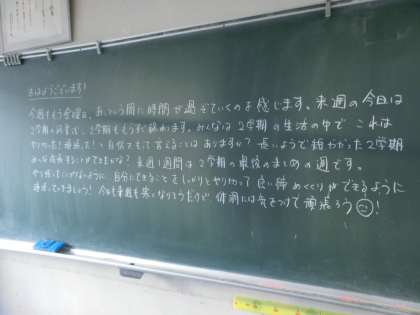 おはようございます!
今週ももう金曜日。あっという間に時間が過ぎていくのを感じます。来週の今日は
2学期の終業式。2学期ももうすぐ終わります。みんなは2学期の生活の中で これは
やりきった!頑張った!と自信をもって言えることはありますか?長いようで短かった2学期
みんな成長することができたかな? 来週1週間は2学期の最後のまとめの週です。
やり残しがないように、自分にできることをしっかりとやりきって良い締めくくりができるように
頑張っていきましょう! 今日も来週も寒くなりそうだけど、体調には気をつけて頑張ろう!